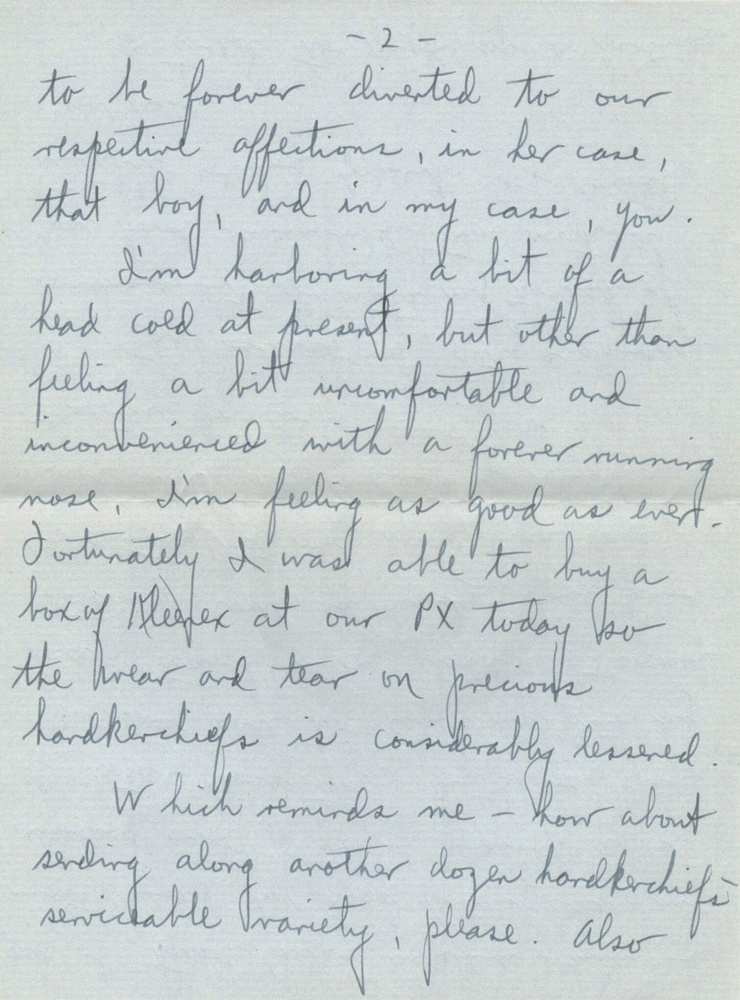 - 2 -
to be forever diverted to our
respective affections, in her case,
that boy, and in my case, you.
I'm harboring a bit of a
head cold at present, but other than
feeling a bit uncomfortable and
inconvenienced with a forever running
nose, I'm feeling as good as ever.
Fortunately I was able to buy a
box of Kleenex at our PX today so
the wear and tear on precious
handkerchiefs is considerably lessened.
Which reminds me - how about
sending along another dozen handkerchiefs -
serviceable variety, please. Also